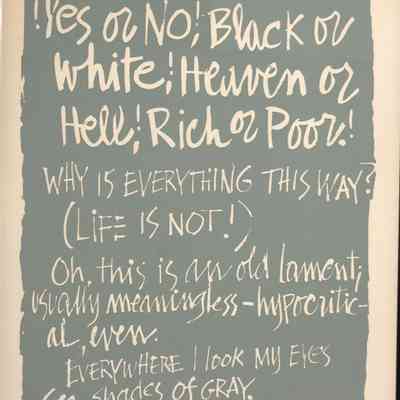 !Yes or NO!; Black or
white!; Heaven or
Hell!; Rich or Poor!
WHY IS EVERYTHING THIS WAY?
(LIFE IS NOT!)
Oh, this is an old lament;
usually meaningless-hypocritic-
al, even.
EVERYWHERE I look MY EYES
see shades of GRAY.